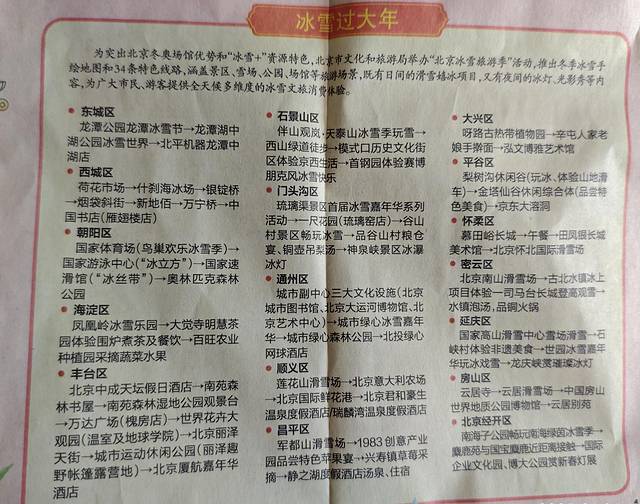 冰雪过大年
为突出北京冬奥场馆优势和“冰雪+”资源特色，北京市文化和旅游局举办“北京冰雪旅游季”活动，推出冬季冰雪手
绘地图和34条特色线路，涵盖景区、雪场、公园、场馆等旅游场景，既有日间的滑雪嬉冰项目，又有夜间的冰灯、光影秀等内
容，为广大市民、游客提供全天候多维度的冰雪文旅消费体验。
● 东城区
龙潭公园龙潭冰雪节→龙潭湖中
湖公园冰雪世界→北平机器龙潭中
湖店
● 西城区
荷花市场→什刹海冰场→银锭桥
→烟袋斜街→新地佰→万宁桥→中
国书店（雁翅楼店）
● 朝阳区
国家体育场（鸟巢欢乐冰雪季）→
国家游泳中心（“冰立方”）→国家速
滑馆（“冰丝带”）→奥林匹克森林
公园
● 海淀区
凤凰岭冰雪乐园→大觉寺明慧茶
园体验围炉煮茶及餐饮→百旺农业
种植园采摘蔬菜水果
● 丰台区
北京中成天坛假日酒店→南苑森
林书屋→南苑森林湿地公园观景台
→万达广场（槐房店）→世界花卉大
观园（温室及地球学院）→北京丽泽
天街→城市运动休闲公园（丽泽趣
野帐篷露营地）→北京厦航嘉年华
酒店
● 石景山区
伴山观岚·天泰山冰雪季玩雪→
西山绿道徒步→模式口历史文化街
区体验京西生活→首钢园体验赛博
朋克风冰雪快乐
● 门头沟区
琉璃渠景区首届冰雪嘉年华系列
活动→一尺花园（琉璃窑店）→谷山
村景区畅玩冰雪→品谷山村粮仓
宴、铜壶吊梨汤→神泉峡景区冰瀑
冰灯
● 通州区
城市副中心三大文化设施（北京
城市图书馆、北京大运河博物馆、北
京艺术中心）→城市绿心冰雪嘉年
华→城市绿心森林公园→北投绿心
网球酒店
● 顺义区
莲花山滑雪场→北京意大利农场
→北京国际鲜花港→北京君和豪生
温泉度假酒店/瑞麟湾温泉度假酒店
● 昌平区
军都山滑雪场→1983创意产业
园品尝特色苹果宴→兴寿镇草莓采
摘→静之湖度假酒店汤泉、住宿
● 大兴区
呀路古热带植物园→辛屯人家老
娘手擀面→泓文博雅艺术馆
● 平谷区
梨树沟休闲谷（玩冰、体验山地滑
车）→金塔仙谷休闲综合体（品尝特
色美食）→京东大溶洞
● 怀柔区
慕田峪长城→午餐→田园很长城
美术馆→北京怀北国际滑雪场
● 密云区
北京南山滑雪场→古北水镇冰上
项目体验—司马台长城登高观雪→
水镇泡汤，品铜火锅
● 延庆区
国家高山滑雪中心雪场滑雪→石
峡村体验非遗美食→世园冰雪嘉年
华玩冰戏雪→龙庆峡赏璀璨冰灯
● 房山区
云居寺→云居滑雪场→中国房山
世界地质公园博物馆→云居别苑
● 北京经开区
南海子公园畅玩南海绿茵冰雪季→
麋鹿苑与国宝麋鹿近距离接触→国际
企业文化园、博大公园赏新春灯展